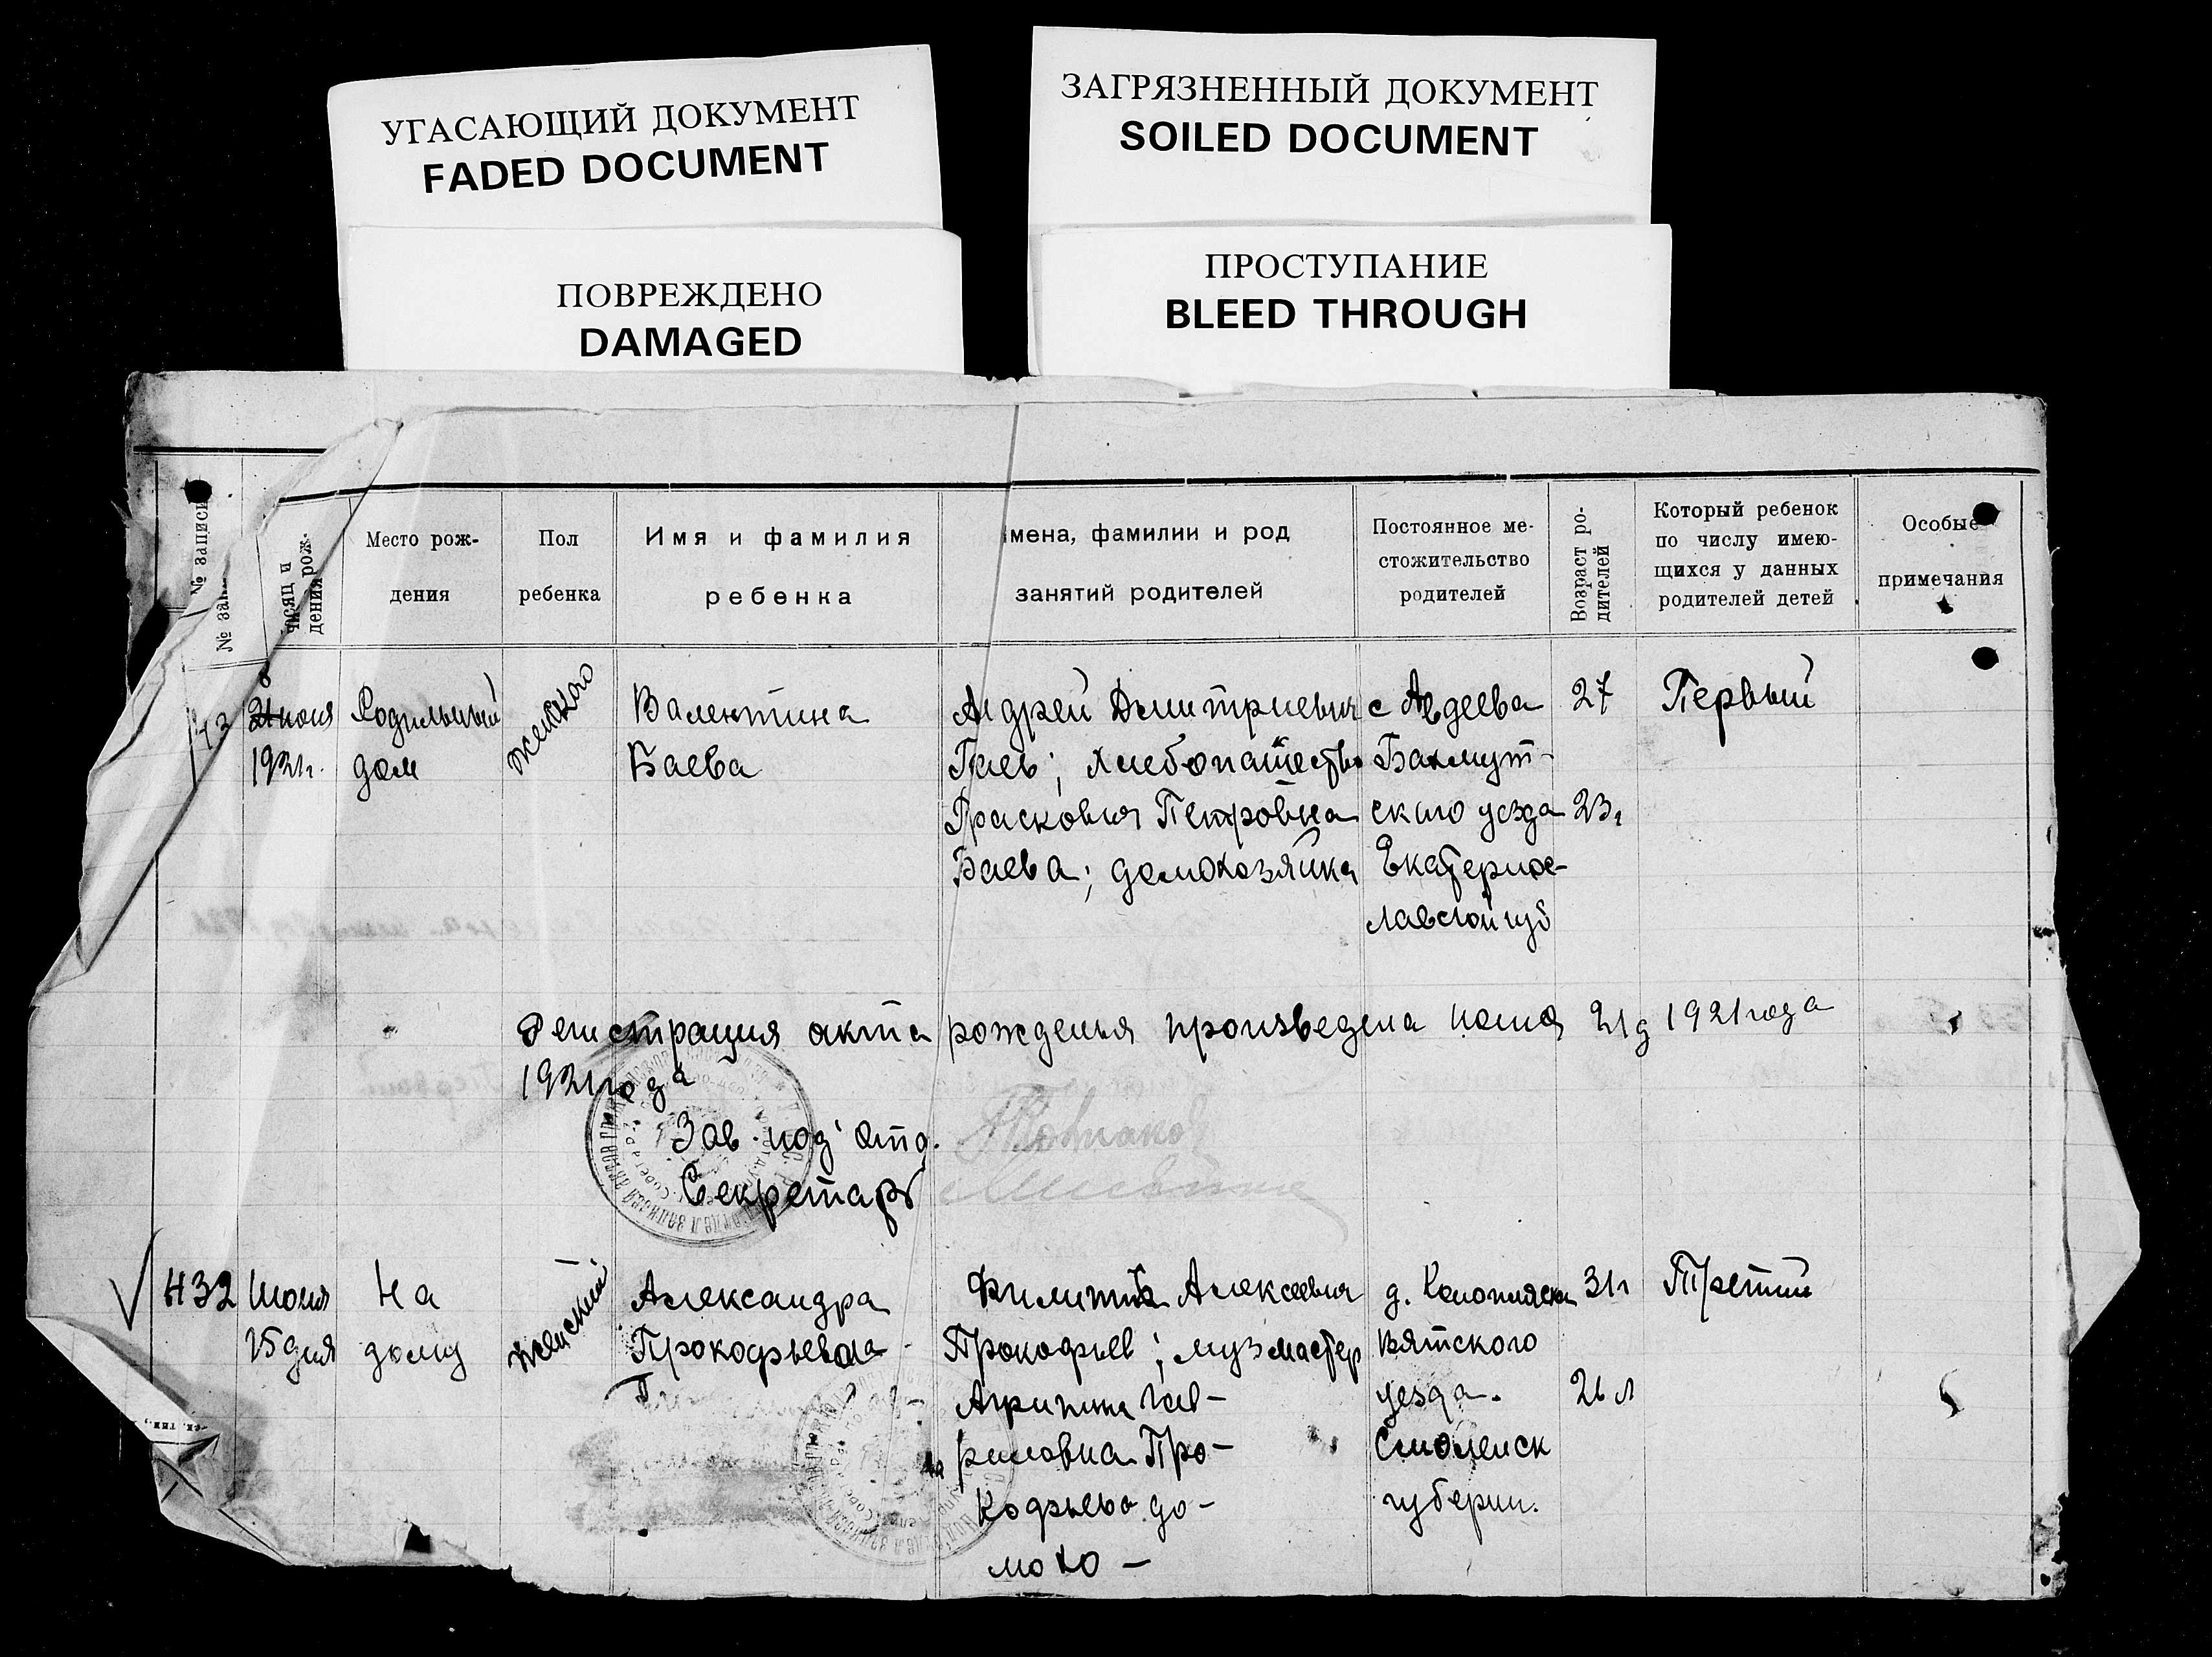 УГАСАЮЩИЙ ДОКУМЕНТ
FADED DOCUMENT
ПОВРЕЖДЕНО
DAMAGED
ЗАГРЯЗНЕННЫЙ ДОКУМЕНТ
SOILED DOCUMENT
ПРОСТУПАНИЕ
BLEED THROUGH
№ записи
№ зап
месяц и
дения рож-
Место рож-
дения
Пол
ребенка
Имя и фамилия
ребенка
Имена, фамилии и род
занятий родителей
Постоянное ме-
стожительство
родителей
Возраст ро-
дителей
Который ребенок
по числу имею-
щихся у данных
родителей детей
Особые
примечания
июня
1921г.
Родильный
дом
женского
Валентина
Баева
Андрей Дмитриевич
Баев; хлебопашество
Прасковья Петровна
Баева; домохозяйка
с Авдеева
Бахмут-
ского уезда
Екатерино-
лавской губ
27
23г
Первый
Регистрация акта рожденья произведена июня 21д 1921 года
1921 года
Зав. под'отд.
Секретарь
432
Июня
15 дня
На
дому
женский
Александра
Прокофьева
Алексеевич
Прокофьев; музмастер
Агрипина Гав-
риловна Про-
кофьева до-
мохо-
д.
Вятского
уезда.
Смоленск
губерни.
31г
26 л
Третий